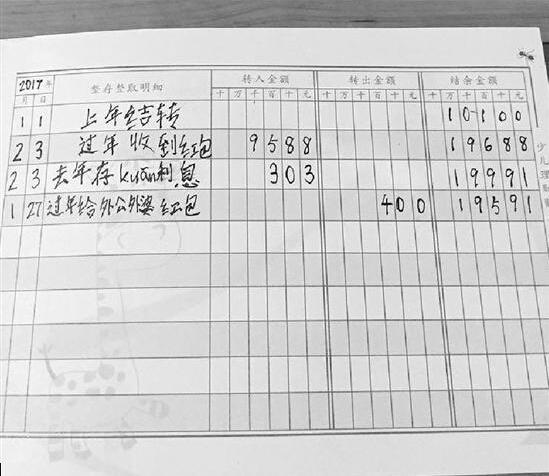 2017年 整存整取明细 转入金额 转出金额 结余金额
月 日 十 万 千 百 十 元 十 万 千 百 十 元 十 万 千 百 十 元
1 1 上年结转 10100
2 3 过年收到红包 9588 19688
2 3 去年存kuǎn利息 303 19991
1 27 过年给外公外婆红包 400 19591
少儿理财